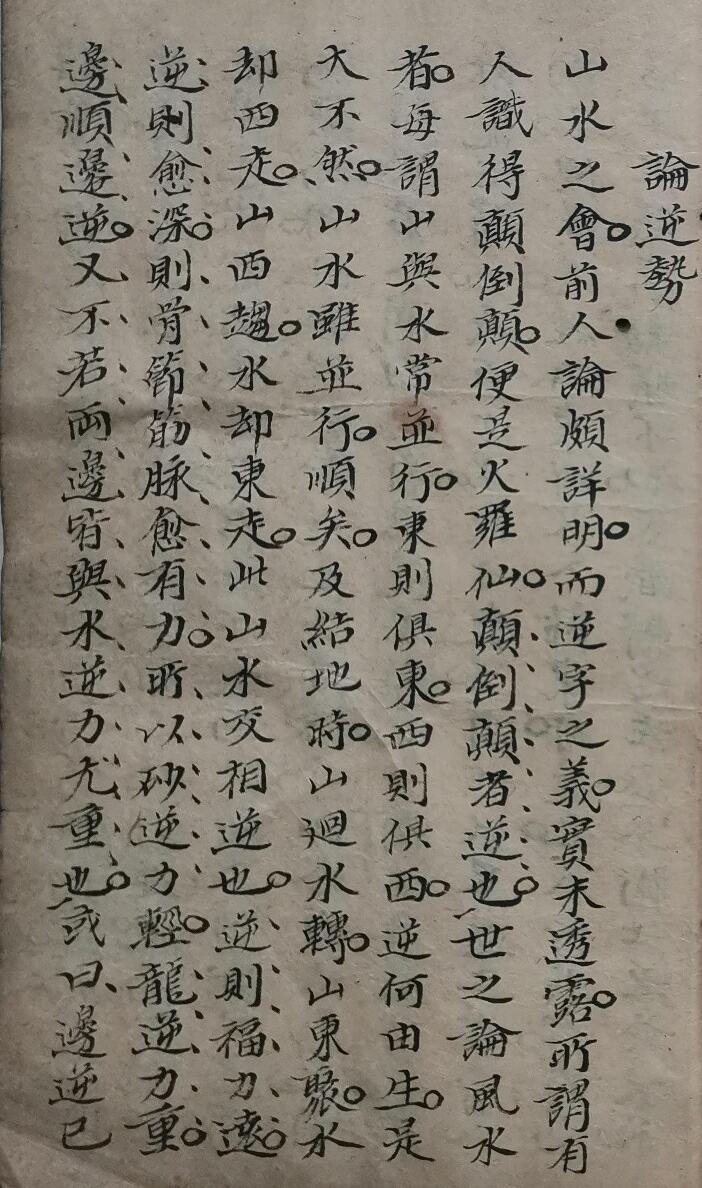 論逆勢
山水之會。前人論頗詳明。而逆字之義。實未透露。所謂有
人識得顛倒顛。便是火羅仙。顛倒顛者逆也。世之論風水
者。每謂山與水常並行。東則俱東。西則俱西。逆何由生。是
大不然。山水雖並行。順矣。及結地時。山迴水轉。山東聚。水
却西走。山西趨。水却東走。此山水交相逆也。逆則福力遠。
逆則愈深。則骨節筋脉愈有力。所以砂逆力輕。龍逆力重。
邊順邊逆。又不若兩邊皆與水逆力尤重也。或曰邊逆已